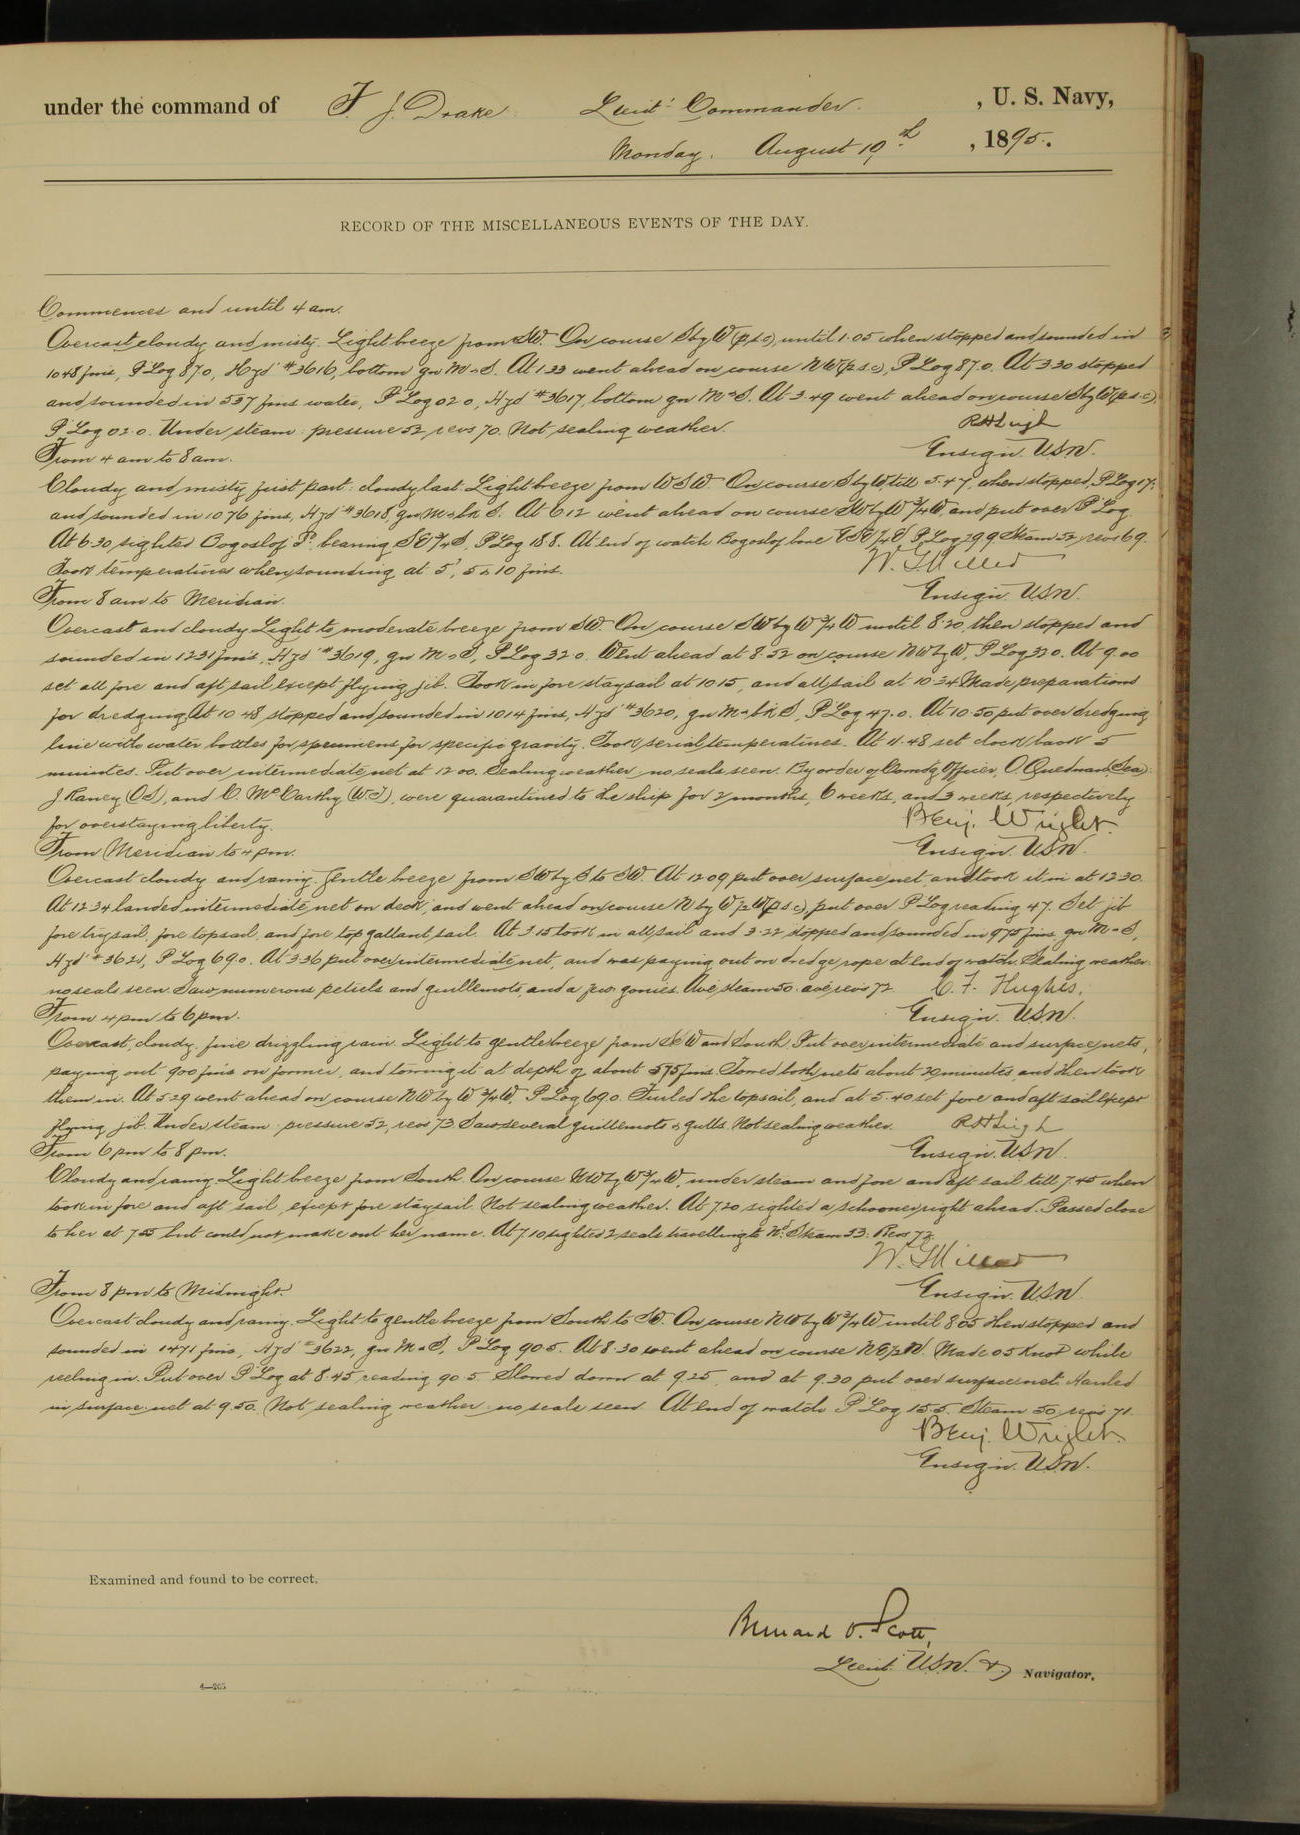 under the command of F. J. Drake Lieut: Commander. , U. S. Navy,
Monday. August 19th , 1895.
RECORD OF THE MISCELLANEOUS EVENTS OF THE DAY.
Commences and until 4 am.
Overcast cloudy and misty. Light breeze from SW. On course S by W (p.s.c), until 1.05 when stopped and sounded in
1048 fms, P Log 87.0, Hyd #3616, bottom gn M & S. At 1.33 went ahead on course NW (p.s.c), P Log 87.0. At 3.20 stopped
and sounded in 537 fms water, P Log 02.0, Hyd #3617, bottom gn M & S. At 3.49 went ahead on course S by W (p.s.c),
P Log 02.0. Under steam: pressure 52 revs 70. Not sealing weather. R H Leigh
From 4 am to 8 am. Ensign. USN.
Cloudy and misty first part: cloudy last. Light breeze from WSW. On course S by W, till 5.47, when stopped, P Log 17.
and sounded in 1076 fms, Hyd #3618, gn M & bk S. At 6.12 went ahead on course SW by W 3/4 W and put over P Log.
At 6.30, sighted Bogoslof Id bearing SE 3/4 S, P Log 18.8. At end of watch Bogoslof bore ESE 1/4 E, P. Log 29.9 Steam 52 revs 69.
Took temperatures when sounding at 5, 5 & 10 fms. W. G Miller
From 8 am to Meridian. Ensign. USN.
Overcast and cloudy. Light to moderate breeze from SW. On course SW by W 3/4 W until 8.20, then stopped and
sounded in 1231 fms, Hyd #3619, gn M & S, P Log 32.0. Went ahead at 8.52 on course NW by W, P Log 32.0. At 9.00
set all fore and aft sail except flying jib. Took in fore staysail at 10.15, and all sail at 10.34. Made preparations
for dredging. At 10.48 stopped and sounded in 1014 fms, Hyd #3620, gn M & bk S, P Log 47.0. At 10.50 put over dredging
line with water bottles for specimens for specific gravity. Took serial temperatures. At 11.48 set clock back 5
minutes. Put over intermediate net at 12.00. Sealing weather no seals seen. By order of Comdg Officer, O. Quedman (Sea)
J Raney (OS), and C. McCarthy (WT), were quarantined to the ship for 2 months, 6 weeks, and 3 weeks, respectively
for overstaying liberty. Benj. Wright.
From Meridian to 4 pm. Ensign. USN.
Overcast cloudy and rainy. Gentle breeze from SW by S to SW. At 12.09 put over surface net, and took it in at 12.30.
At 12.34 landed intermediate net on deck, and went ahead on course N by W 1/2 W (p.s.c), put over P Log reading 47. Set jib
fore trysail, fore topsail, and fore top gallant sail. At 3.15 took in all sail and 3.22 stopped and sounded in 975 fms. gn M & S,
Hyd #3621, P Log 69.0. At 3.36 put over intermediate net, and was paying out on dredge rope at end of watch. Sealing weather
no seals seen. Saw numerous petrels and guillemots, and a few gonies. Ave. steam 50. ave. revs 72 C. F. Hughes.
From 4 pm to 6 pm. Ensign. USN.
Overcast, cloudy, fine drizzling rain. Light to gentle breeze from SW and South. Put over intermediate and surface nets,
paying out 900 fms on former, and towing it at depth of about 575 fms. Towed both nets about 20 minutes, and then took
them in. At 5.29 went ahead on course NW by W 3/4 W, P Log 69.0. Furled the topsail, and at 5.40 set fore and aft sail except
flying jib. Under steam: pressure 52, revs 73. Saw several guillemots & gulls. Not sealing weather. R H Leigh
From 6 pm to 8 pm. Ensign. USN.
Cloudy and rainy. Light breeze from South. On course NW by W 3/4 W, under steam and fore and aft sail till 7.45 when
took in fore and aft sail except fore staysail. Not sealing weather. At 7.20 sighted a schooner right ahead. Passed close
to her at 7.55 but could not make out her name. At 7.10 sighted 2 seals travelling to Nd. Steam 53. Revs 73.
W. G Miller
From 8 pm to Midnight. Ensign. USN.
Overcast cloudy and rainy. Light to gentle breeze from South to SW. On course NW by W 3/4 W until 8.05 then stopped and
sounded in 1471 fms, Hyd #3622, gn M & S, P Log 90.5. At 8.30 went ahead on course NE 1/2 N. Made 0.5 Knot while
reeling in. Put over P Log at 8.45 reading 90.5. Slowed down at 9.25, and at 9.30 put over surface net. Hauled
in surface net at 9.50. Not sealing weather no seals seen. At end of watch P Log 15.5. Steam 50, revs 71.
Benj. Wright
Ensign. USN.
Examined and found to be correct.
Bernard O. Scott,
Lieut. U.S.N. & Navigator.
4—205